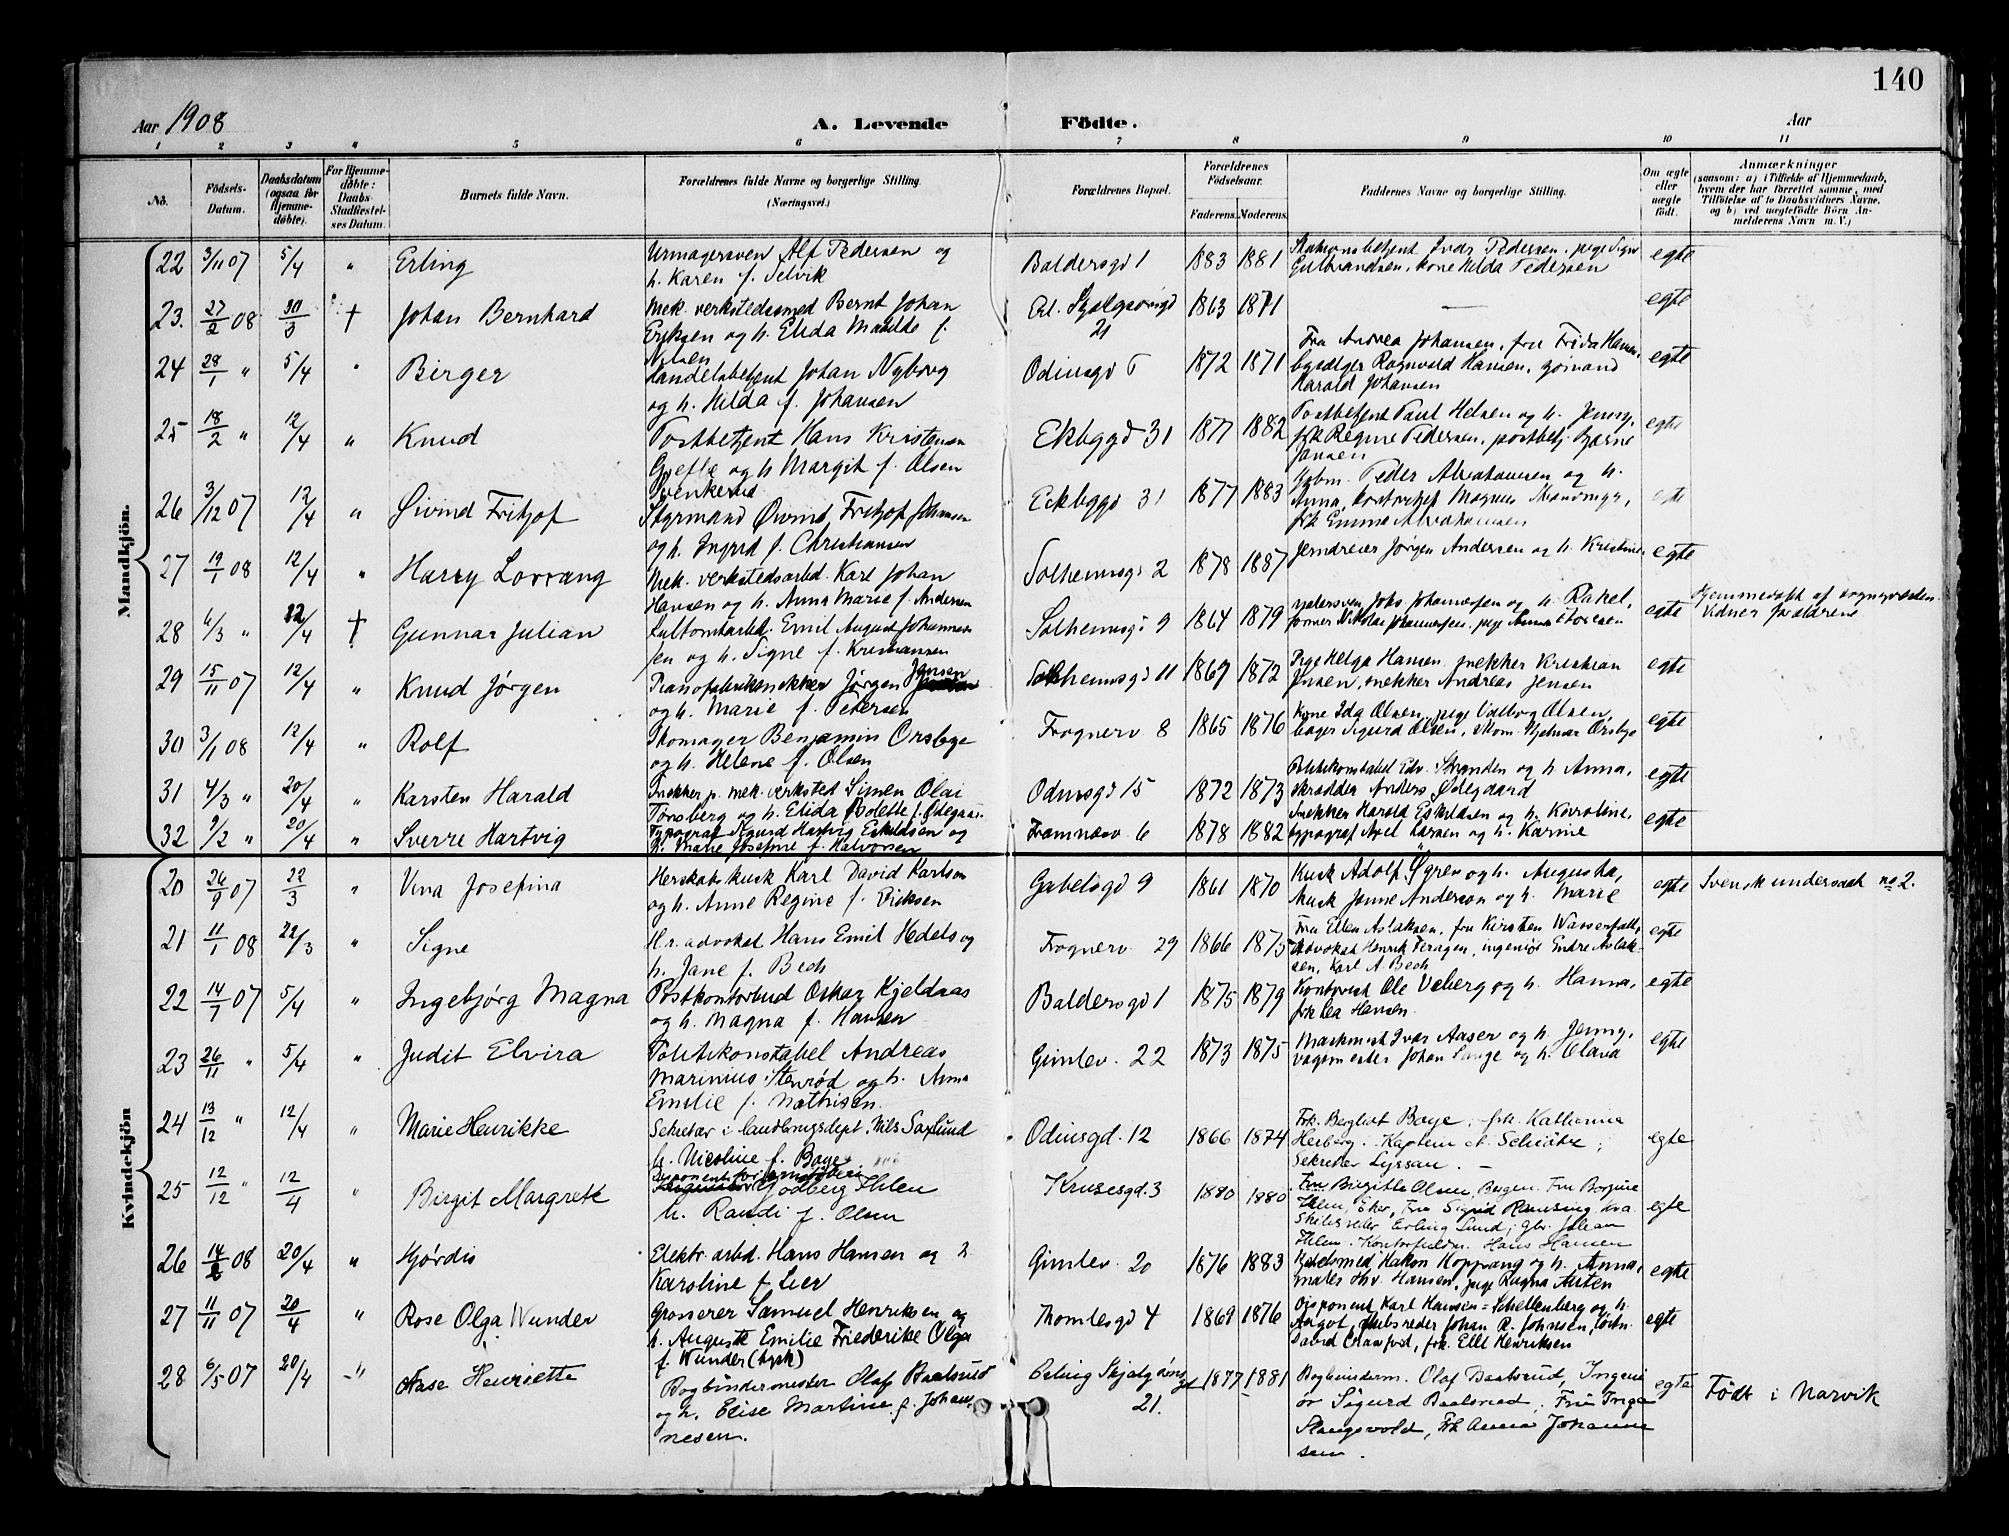 140
Aar 1908
A. Levende Födte.
Aar
1 2 3 4 5 6 7 8 9 10 11
No.
Födsels-Datum.
Daabsdatum (ogsaa for Hjemmedöbte).
For Hjemmedöbte: Daabs-Stadfæstelses Datum.
Barnets fulde Navn.
Forældrenes fulde Navne og borgerlige Stilling.
(Næringsvei.)
Forældrenes Bopæl.
Forældrenes Födselsaar.
Faderens. Moderens.
Faddernes Navne og borgerlige Stilling.
Om ægte eller uægte födt.
Anmærkninger
(saasom: a) i Tilfælde af Hjemmedaab, hvem der har forrettet samme, med Tilföielse af to Daabsvidners Navne, og b) ved uægtefödte Börn Anmelderens Navn m. V.)
Mandkjön.
22 3/11 07 5/4 " Erling Urmagersven Alf Pedersen og
h. Karen f. Selvik Baldersgd 1 1883 1881 Stationsbetjent Ivar Pedersen, pige Signe
Gulbrandsen, kone Hilda Pedersen egte
23. 27/2 08 30/3 † Johan Bernhard Mek. verkstedsmed Bernt Johan
Eriksen og h. Elida Matilde f.
Nilsen Erl. Skjalgssønsgd 21 1863 1871 — egte
24 28/1 " 5/4 " Birger Handelsbetjent Johan Nyborg
og h. Hilda f. Johansen Odinsgd 1872 1871 Fru Andrea Johansen, fru Frida Hansen,
Ragnvald Hansen,
Harald Johansen egte
25 18/2 " 12/4 " Knud Postbetjent Hans Kristensen
og h Margit f. Olsen
Svenkerud Ekbggd 31 1877 1882 Postbetjent Paul Helsen og h. Jenny,
frk Regine Pedersen, postbetj. Bjarne
Jansen egte
26 3/12 07 12/4 " Øivind Fritjof Styrmand Øivind Fritjof Johansen
og h. Ingrid f. Christiansen Eckbggd 31 1877 1883 Peder Abrahamsen og h.
Anna, Magnus
frk Emma Abrahamsen egte
27 19/1 08 12/4 " Harry Lorrang Mek. verkstedsarbd. Karl Johan
Hansen og h. Anna Marie f. Andersen Solheimsgd 2 1878 1887 Jerndreier Jørgen Andersen og h. Kristine egte
28 6/3 " 12/4 † Gunnar Julian Emil August Johannes
sen og h. Signe f. Kristiansen Solheimsgd 9 1864 1879 Johannessen og h. Rakel,
former Nikolai Johannessen, pige Anna Thoresen egte Hjemmedøbt af sognepresten
Vidner forældrene
29 15/11 07 12/4 " Knud Jørgen Pianofabriksnekker Jørgen Jensen
og h. Marie f. Petersen Solheimsgd 11 1869 1872 Pige Helga Hansen, snekker Kristian
Jensen, snekker Andreas Jensen egte
30 3/1 08 12/4 " Rolf Skomager Benjamin Ørsbye
og h. Helene f. Olsen Frognerv 8 1865 1876 Kone Ida Olsen, pige Valborg Olsen,
bager Sigurd Olsen, skom. Hjelmar Ørsbye egte
31 4/3 " 20/4 " Karsten Harald Snekker p. mek. verksted Simen Olai
Tønsberg og h. Elida Bolette f. Ødegaar. Odinsgd 15 1872 1873 Politikonstabel Edv. Stranden og h Anna,
skrædder Anders Ødegaard egte
32 9/2 " 20/4 " Sverre Hartvig Typograf Sigurd Hartvig Eskildsen og
h. Marie Josefine f. Halvorsen Framnæsv. 6 1878 1882 Snekker Harald Eskildsen og h. Karoline,
typograf Axel Larsen og h. Karine egte
Kvindekjön
20 26/9 07 22/3 " Vina Josefina Herskabskusk Karl David Karlson
og h. Anne Regine f. Eriksen Gabelsgd 9 1861 1870 Kusk Adolf Øgren og h. Augusta,
kusk Jonne Anderson og h. Marie egte Svensk undersaat no 2.
21 11/1 08 22/3 " Signe H.r. advokat Hans Emil Hedels og
h. Jane f. Bech Frognerv 29 1866 1875 Fru Ellen Aslaksen, fru Kirsten Wasserfall,
advokat Henrik Feragen, ingeniør Endre Aslak-
sen, Karl A. Bech egte
22 14/7 07 5/4 " Ingebjørg Magna Postkontorbud Oskar Kjeldaas
og h. Magna f. Hansen Baldersgd 1 1875 1879 Kontorist Ole Veberg og h. Hanna,
frk Lea Hansen. egte
23 26/11 " 5/4 " Judit Elvira Politikonstabel Andreas
Marinius Stenrød og h. Anna
Emilie f. Mathisen. Gimlev. 22 1873 1875 Maskinist Ivar Aaser og h. Jenny,
vognmester Johan Lange og h. Olava egte
24 13/12 " 12/4 " Marie Henrikke Sekretær i landbrugsdept. Nils Saxlund
h. Nicoline f. Boye Odinsgd. 12 1866 1874 Frk. Bergliot Boye; frk. Katherine
Herberg. Kaptein A. Schiøtz;
Sekretær Lyssan. — egte
25 12/12 " 12/4 " Birgit Margrete Disponent
Godberg Ihlen
h. Randi f. Olsen Krusesgd. 3 1880 1880 Fru Birgitte Olsen, Bergen. Fru Borgine
Ihlen, Eker, Fru Sigrid Ramsing,
Skibsreder Erling Lund; Gbr. Johan
Ihlen. Kontorfuldm. Hans Hansen egte
26 14/2 08 20/4 " Hjørdis Elektr. arbd. Hans Hansen og h.
Karoline f Lier Gimlev. 20 1876 1883 Hakon Koppang og h. Anna,
maler Thv. Hansen, pige Ragna Austen egte
27 11/11 07 20/4 " Rose Olga Wunder Grosserer Samuel Henriksen og
h. Auguste Emilie Friederike Olga
f. Wunder (tysk) Thomlesgd 4 1869 1876 Disponent Karl Hansen-Schellenberg og h.
Aagot, skibsreder Johan R. Johnsen, løitn.
David Crawford, frk. Elle Henriksen egte
28 6/5 07 20/4 " Aase Henriette Bogbindermester Olaf Baalsrud
og h. Elise Martine f. Johan-
nesen. Erling Skjalgssøns gd 21. 1877 1881 Bogbinderm. Olaf Baalsrud, Ingeni
ør Sigurd Baalsrud. Fru Inga
Slangsvold, Frk Anna Johanne
sen. egte Født i Narvik